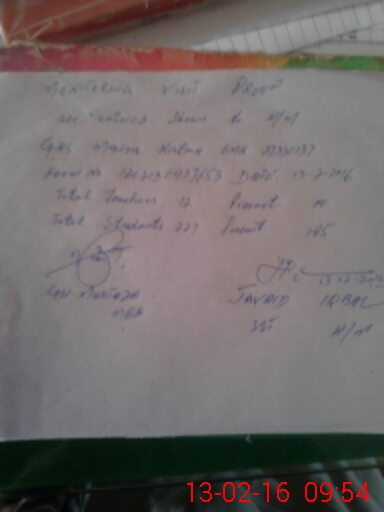 Monitoring Visit Proof
All entries Shown to H/M
GHS Maira Kalan EMIS 37330137
Form No DATE. 13-2-2016
Total Teachers 12 Present 10
Total Students 227 Present 185
13-02-2016
JAVAID IQBAL
MEA
SST H/M
13-02-16 09:54